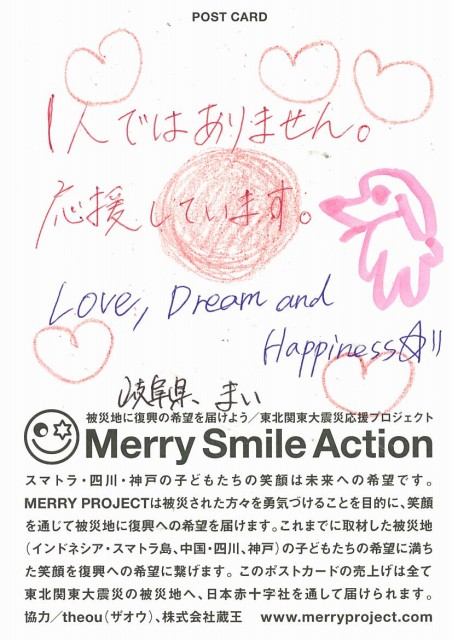 POST CARD
1人ではありません。
応援しています。
Love, Dream and
Happiness☆!!
岐阜県、まい
被災地に復興の希望を届けよう／東北関東大震災応援プロジェクト
Merry Smile Action
スマトラ・四川・神戸の子どもたちの笑顔は未来への希望です。
MERRY PROJECTは被災された方々を勇気づけることを目的に、笑顔
を通じて被災地に復興への希望を届けます。これまでに取材した被災地
（インドネシア・スマトラ島、中国・四川、神戸）の子どもたちの希望に満ち
た笑顔を復興への希望に繋げます。このポストカードの売上げは全て
東北関東大震災の被災地へ、日本赤十字社を通して届けられます。
協力／theou（ザオウ）、株式会社蔵王　www.merryproject.com